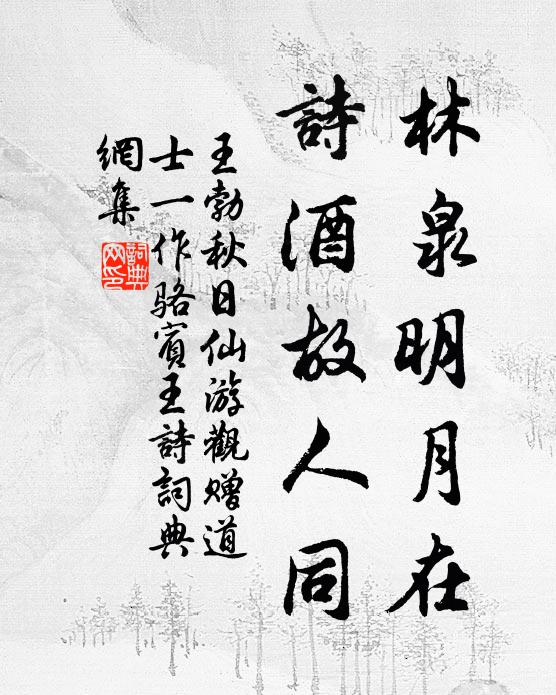 林泉明月在
詩酒故人同
王勃秋日仙游觀贈道
士一作駱賓王詩詞典
網集
詞典
网印